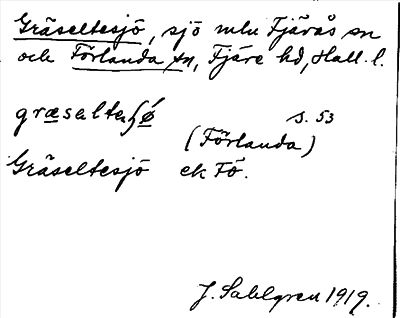 Gräseltesjö, sjö mln Fjärås sn
och Förlanda sn, Fjäre hd, Hall. l.
græselteʃø
s. 53
(Förlanda)
Gräseltesjö ek Fö.
J. Sahlgren 1919.